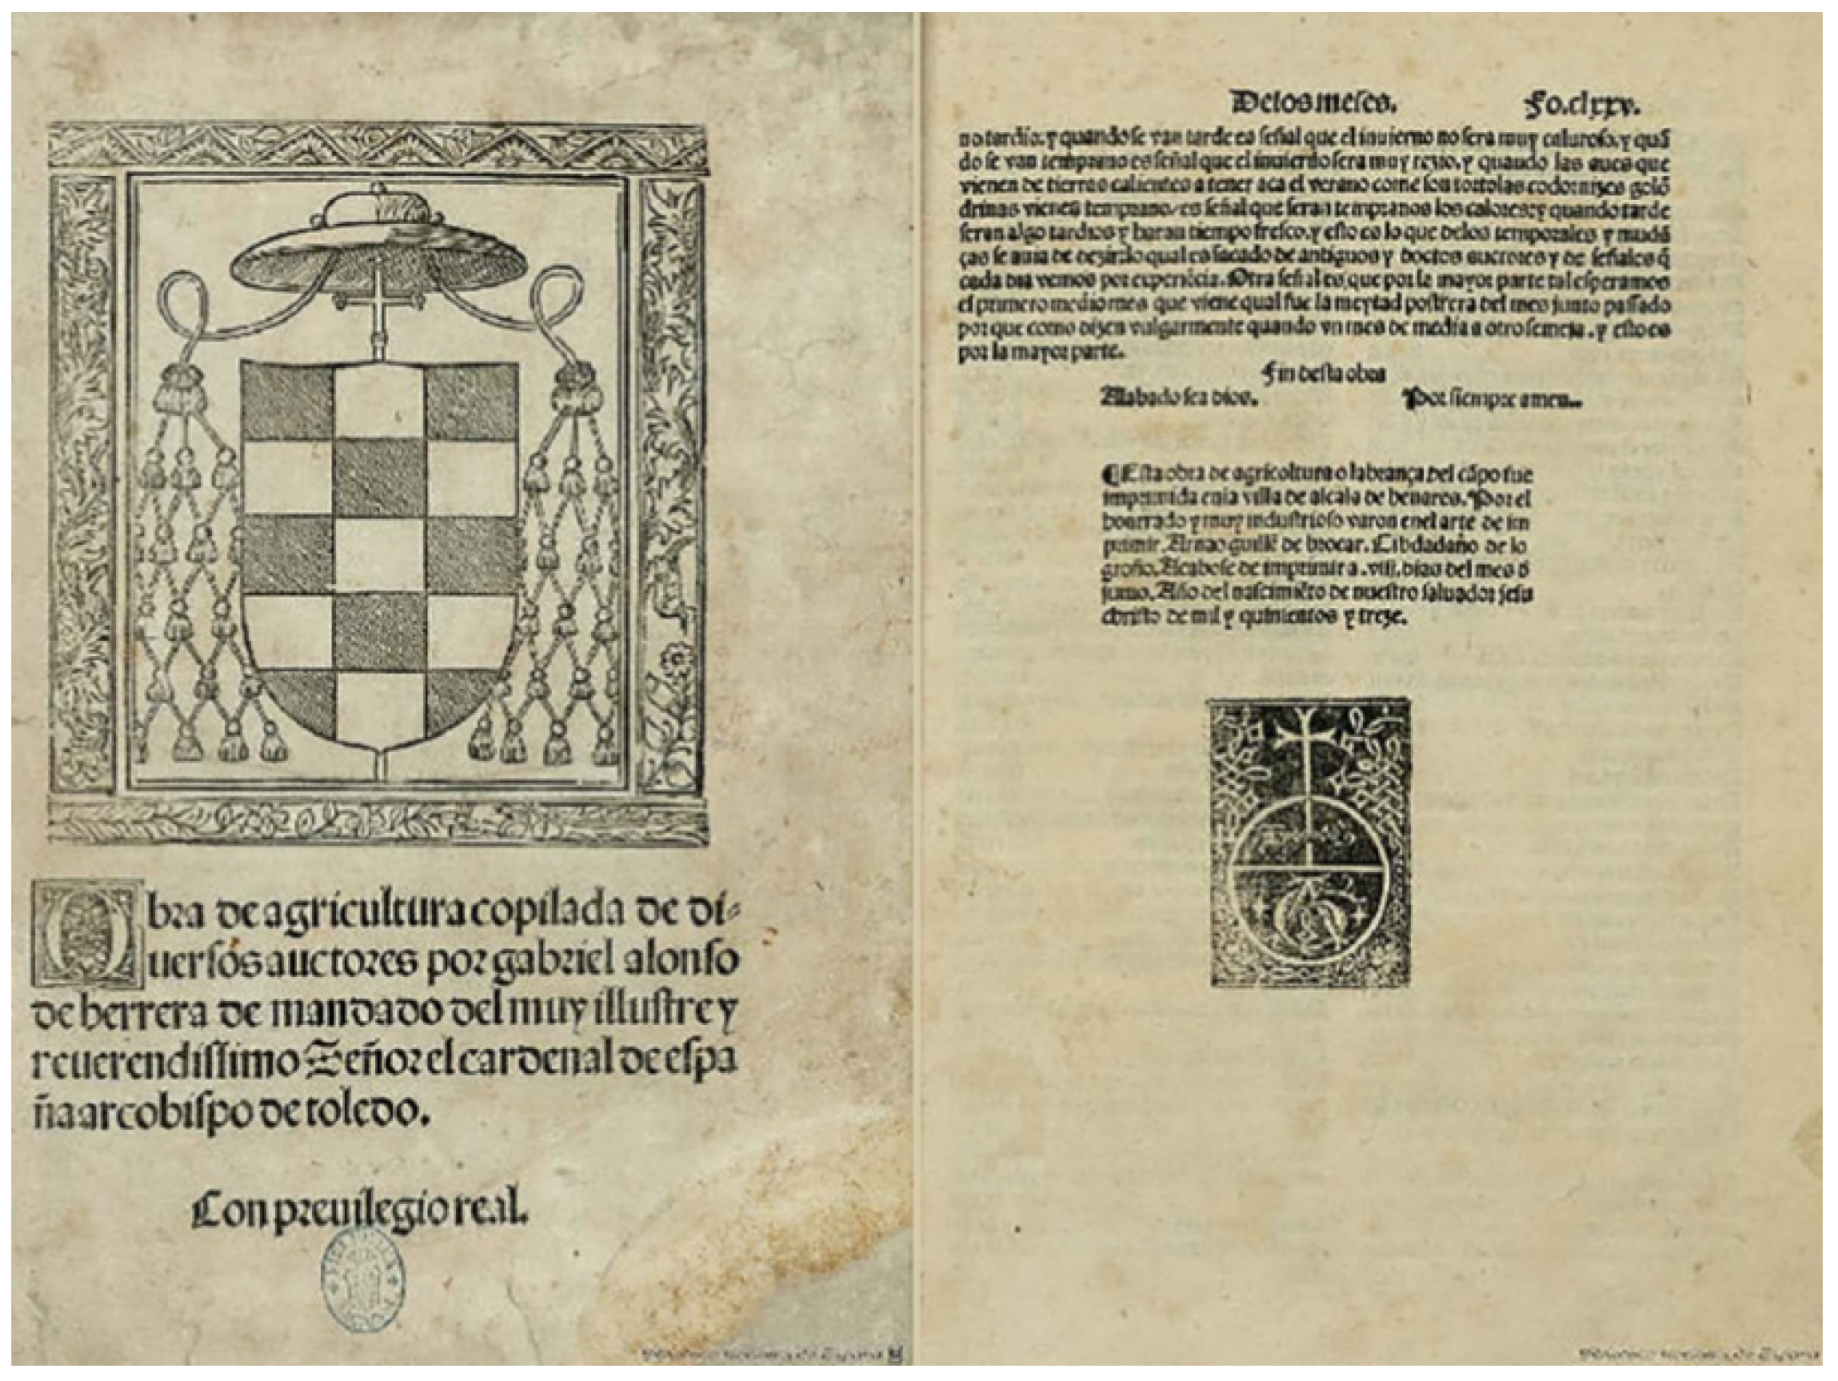 Obra de agricultura copilada de di⸗
uersos auctores por gabriel alonso
de herrera de mandado del muy illustre y
reuerendissimo Señor el cardenal de espa
ña arcobispo de toledo.
Con preuilegio real.
De los meses. Fo.clxxv.
no tardio: y quando se van tarde es señal que el inuierno no sera muy caluroso. y quā
do se van temprano es señal que el inuierno sera muy rezio. y quando las aues que
vienen de tierras calientes a tener aca el verano como son tortolas codornizes golō
drinas vienen temprano/ es señal que seran tempranos los calores: y quando tarde
seran algo tardios y haran tiempo fresco. y esto es lo que delos temporales y mudā
ças se auia de dezir: lo qual es sacado de antiguos y doctos auctores y de señales q̄
cada dia vemos por experiēcia. Otra señal es, que por la mayor parte tal esperamos
el primero medio mes que viene qual fue la meytad postrera del mes junto passado
por que como dizen vulgarmente quando vn mes de media a otro semeja. y esto es
por la mayor parte.
Fin desta obra
Alabado sea dios. Por siempre amen..
¶Esta obra de agricoltura o labrança del cāpo fue
imprimida enla villa de alcala de henares. Por el
honrrado y muy industrioso varon enel arte de im
primir. Arnao guillē de brocar. Cibdadaño de lo
groño. Acabose de imprimir a .viij. dias del mes ō
junio. Año del nascimiēto de nuestro saluador jesu
christo de mil y quinientos y treze.